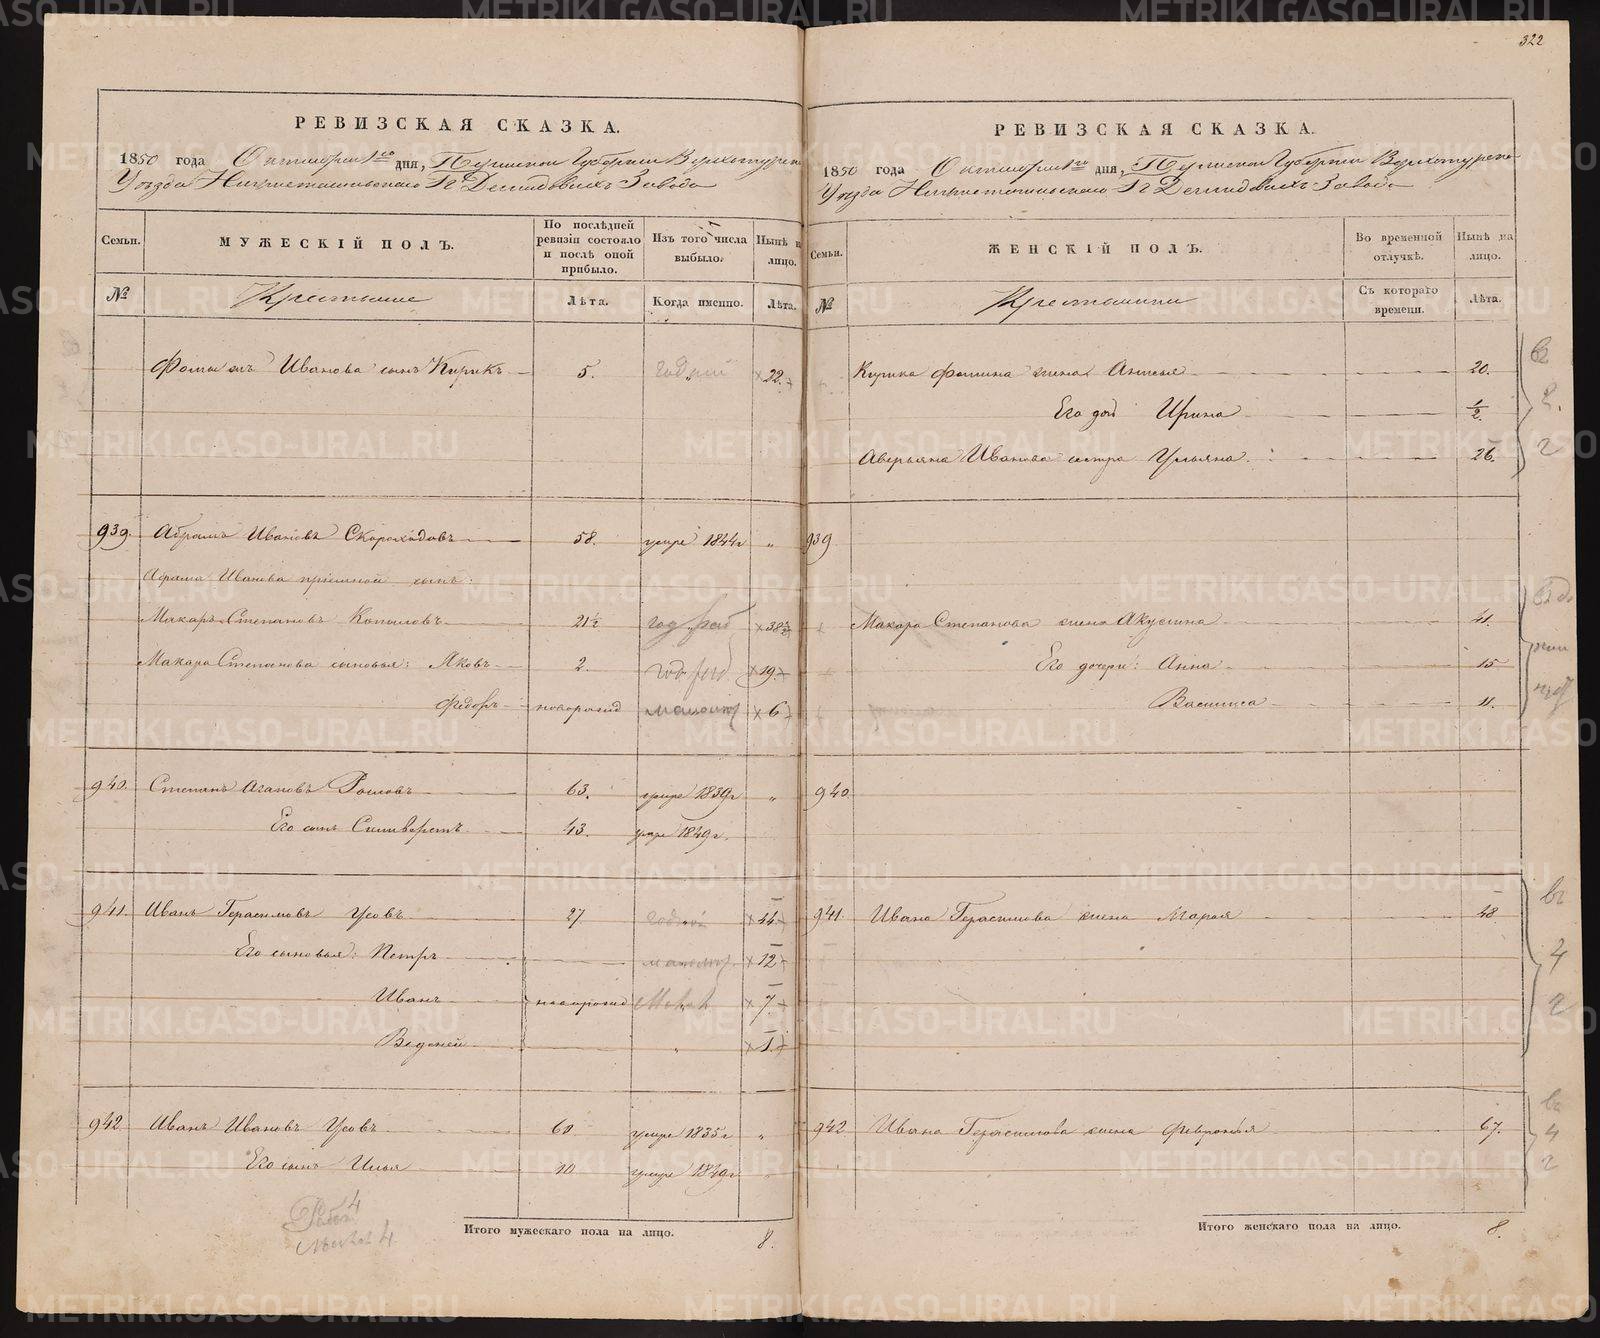 322
РЕВИЗСКАЯ СКАЗКА.
1850 года Октября 1го дня, Пермской Губерніи Верхотурск-
Уѣзда Нижнетагильскаго Гг Демидовыхъ Завода
Семьи. МУЖЕСКІЙ ПОЛЪ. По послѣдней ревизіи состояло и послѣ оной прибыло. Изъ того числа выбыло. Нынѣ на лицо.
№ Крестьяне Лѣта. Когда именно. Лѣта.
Фомы Иванова сынъ Кирикъ 5. годный 22.
939. Абрамъ Ивановъ Скороходовъ 58. умре 1844г "
Абрама Иванова пріемной сынъ:
Макаръ Степановъ Копыловъ 21½ год. раб 38½
Макара Степанова сыновья: Яковъ 2. год. 19.
Федоръ новорожд малолѣт 6
940. Степанъ Агаповъ Рословъ 63. умре 1839г "
Его сынъ Силиверстъ 43. умре 1849г.
941. Иванъ Герасимовъ Усовъ 27 годной 44
Его сыновья: Петръ малолѣт. 12
Иванъ новорожд 7
Ведений " 1.
942 Иванъ Ивановъ Усовъ 60 умре 1835г "
Его сынъ Илья 10 умре 1849г "
Работ 4
4
Итого мужескаго пола на лицо. 8.
РЕВИЗСКАЯ СКАЗКА.
1850 года Октября 1го дня, Пермской Губерніи Верхотурско-
Уѣзда Нижнетагильскаго Гг Демидовыхъ Завода
Семьи. ЖЕНСКІЙ ПОЛЪ. Во временной отлучкѣ. Нынѣ на лицо.
№ Крестьянки Съ котораго времени. Лѣта.
Кирика Фомина жена Анисья 20.
Его дочь Ирина ½.
Аверьяна Иванова сестра Ульяна. 26.
939
Макара Степанова жена Акулина 41.
Его дочери: Анна 15
Василиса 11.
940
941. Ивана Герасимова жена Марья 48
942 Ивана Герасимова жена Февронья 67.
Итого женскаго пола на лицо. 8.
METRIKI.GASO-URAL.RU